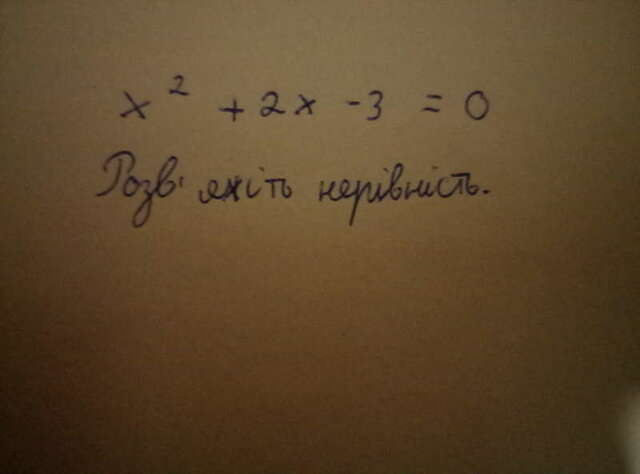 x² + 2x - 3 = 0
Розв'яжіть нерівність.